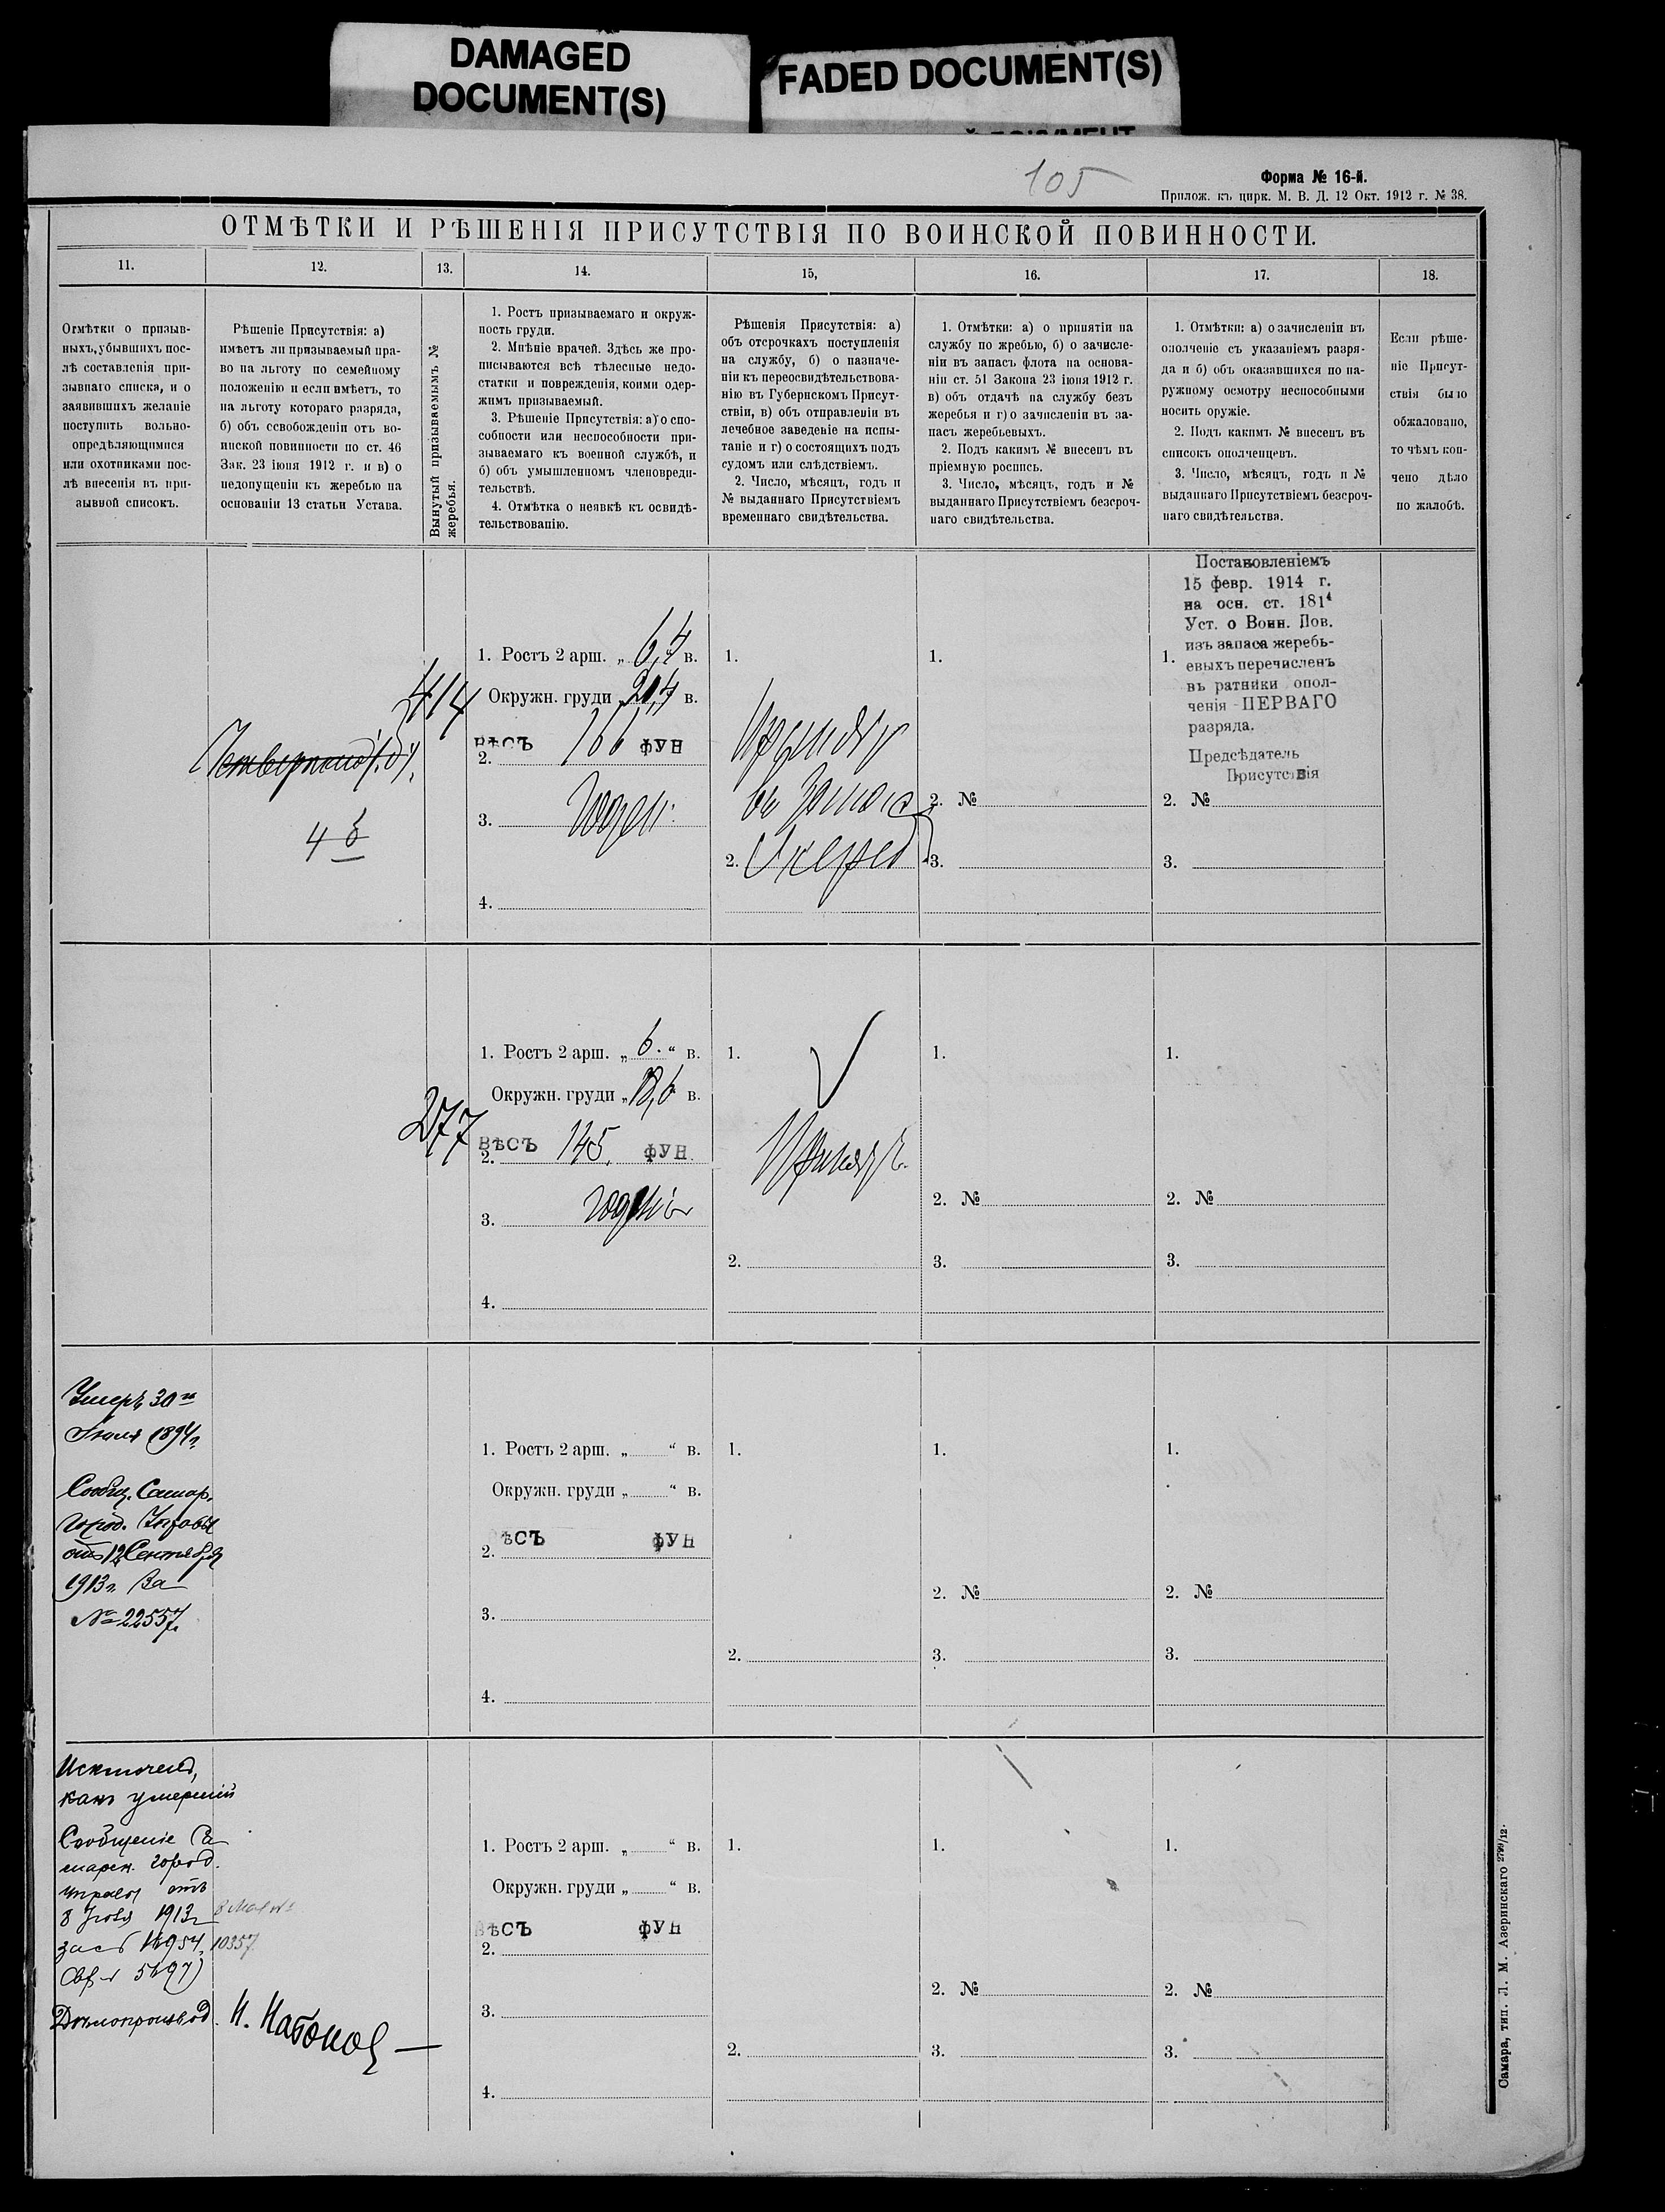 DAMAGED
DOCUMENT(S)
FADED DOCUMENT(S)
105
Форма № 16-й.
Прилож. къ цирк. М. В. Д. 12 Окт. 1912 г. № 38.
ОТМѢТКИ И РѢШЕНІЯ ПРИСУТСТВІЯ ПО ВОИНСКОЙ ПОВИННОСТИ.
11.
12.
13.
14.
15,
16.
17.
18.
Отмѣтки о призыв-
ныхъ, убывшихъ пос-
лѣ составленія при-
зывнаго списка, и о
заявившихъ желаніе
поступить вольно-
опредѣляющимися
или охотниками пос-
лѣ внесенія въ при-
зывной списокъ.
Рѣшеніе Присутствія: а)
имѣетъ ли призываемый пра-
во на льготу по семейному
положенію и если имѣетъ, то
на льготу котораго разряда,
б) объ освобожденіи отъ во-
инской повинности по ст. 46
Зак. 23 іюня 1912 г. и в) о
недопущеніи къ жеребью на
основаніи 13 статьи Устава.
Вынутый призываемымъ №
жеребья.
1. Ростъ призываемаго и окруж-
ность груди.
2. Мнѣніе врачей. Здѣсь же про-
писываются всѣ тѣлесные недо-
статки и поврежденія, коими одер-
жимъ призываемый.
3. Рѣшеніе Присутствія: а) о спо-
собности или неспособности при-
зываемаго къ военной службѣ, и
б) объ умышленномъ членовреди-
тельствѣ.
4. Отмѣтка о неявкѣ къ освидѣ-
тельствованію.
Рѣшенія Присутствія: а)
объ отсрочкахъ поступленія
на службу, б) о назначе-
ніи къ переосвидѣтельствова-
нію въ Губернскомъ Присут-
ствіи, в) объ отправленіи въ
лечебное заведеніе на испы-
таніе и г) о состоящихъ подъ
судомъ или слѣдствіемъ.
2. Число, мѣсяцъ, годъ и
№ выданнаго Присутствіемъ
временнаго свидѣтельства.
1. Отмѣтки: а) о принятіи на
службу по жребью, б) о зачисле-
ніи въ запасъ флота на основа-
ніи ст. 51 Закона 23 іюня 1912 г.
в) объ отдачѣ на службу безъ
жеребья и г) о зачисленіи въ за-
пасъ жеребьевыхъ.
2. Подъ какимъ № внесенъ въ
пріемную роспись.
3. Число, мѣсяцъ, годъ и №
выданнаго Присутствіемъ безсроч-
наго свидѣтельства.
1. Отмѣтки: а) о зачисленіи въ
ополченіе съ указаніемъ разря-
да и б) объ оказавшихся по на-
ружному осмотру неспособными
носить оружіе.
2. Подъ какимъ № внесенъ въ
списокъ ополченцевъ.
3. Число, мѣсяцъ, годъ и №
выданнаго Присутствіемъ безсроч-
наго свидѣтельства.
Если рѣше-
ніе Присут-
ствія было
обжаловано,
то чѣмъ кон-
чено дѣло
по жалобѣ.
4 б
414
1. Ростъ 2 арш. „ 6,4 в.
Окружн. груди „ 21,4 в.
ВѢСЪ 166 ФУН
2.
3. Годен.
4.
1.
въ запасъ
2.
1.
2. №
3.
Постановленіемъ
15 февр. 1914 г.
на осн. ст. 181⁴
Уст. о Воин. Пов.
изъ запаса жеребь-
1. евыхъ перечисленъ
въ ратники опол-
ченія ПЕРВАГО
разряда.
Предсѣдатель
Присутствія
2. №
3.
277
1. Ростъ 2 арш. „ 6. “ в.
Окружн. груди „ 18,6 в.
ВѢСЪ 145. ФУН.
2.
3. годенъ
4.
1.
Принять.
2.
1.
2. №
3.
1.
2. №
3.
Умеръ 30го
Іюля 1894г.
Сообщ. Самар.
Город. Управы
отъ 12 Сентября
1913г. за
№ 22557.
1. Ростъ 2 арш. „ “ в.
Окружн. груди „ “ в.
ВѢСЪ ФУН
2.
3.
4.
1.
2.
1.
2. №
3.
1.
2. №
3.
Исключенъ,
какъ умершій
Сообщеніе Са-
марск. город.
управы отъ
1913г.
10357.
Дѣлопроизвод. Н. Набоков
1. Ростъ 2 арш. „ “ в.
Окружн. груди „ “ в.
ВѢСЪ ФУН
2.
3.
4.
1.
2.
1.
2. №
3.
1.
2. №
3.
Самара, тип. Л. М. Азеринскаго 2799/12.